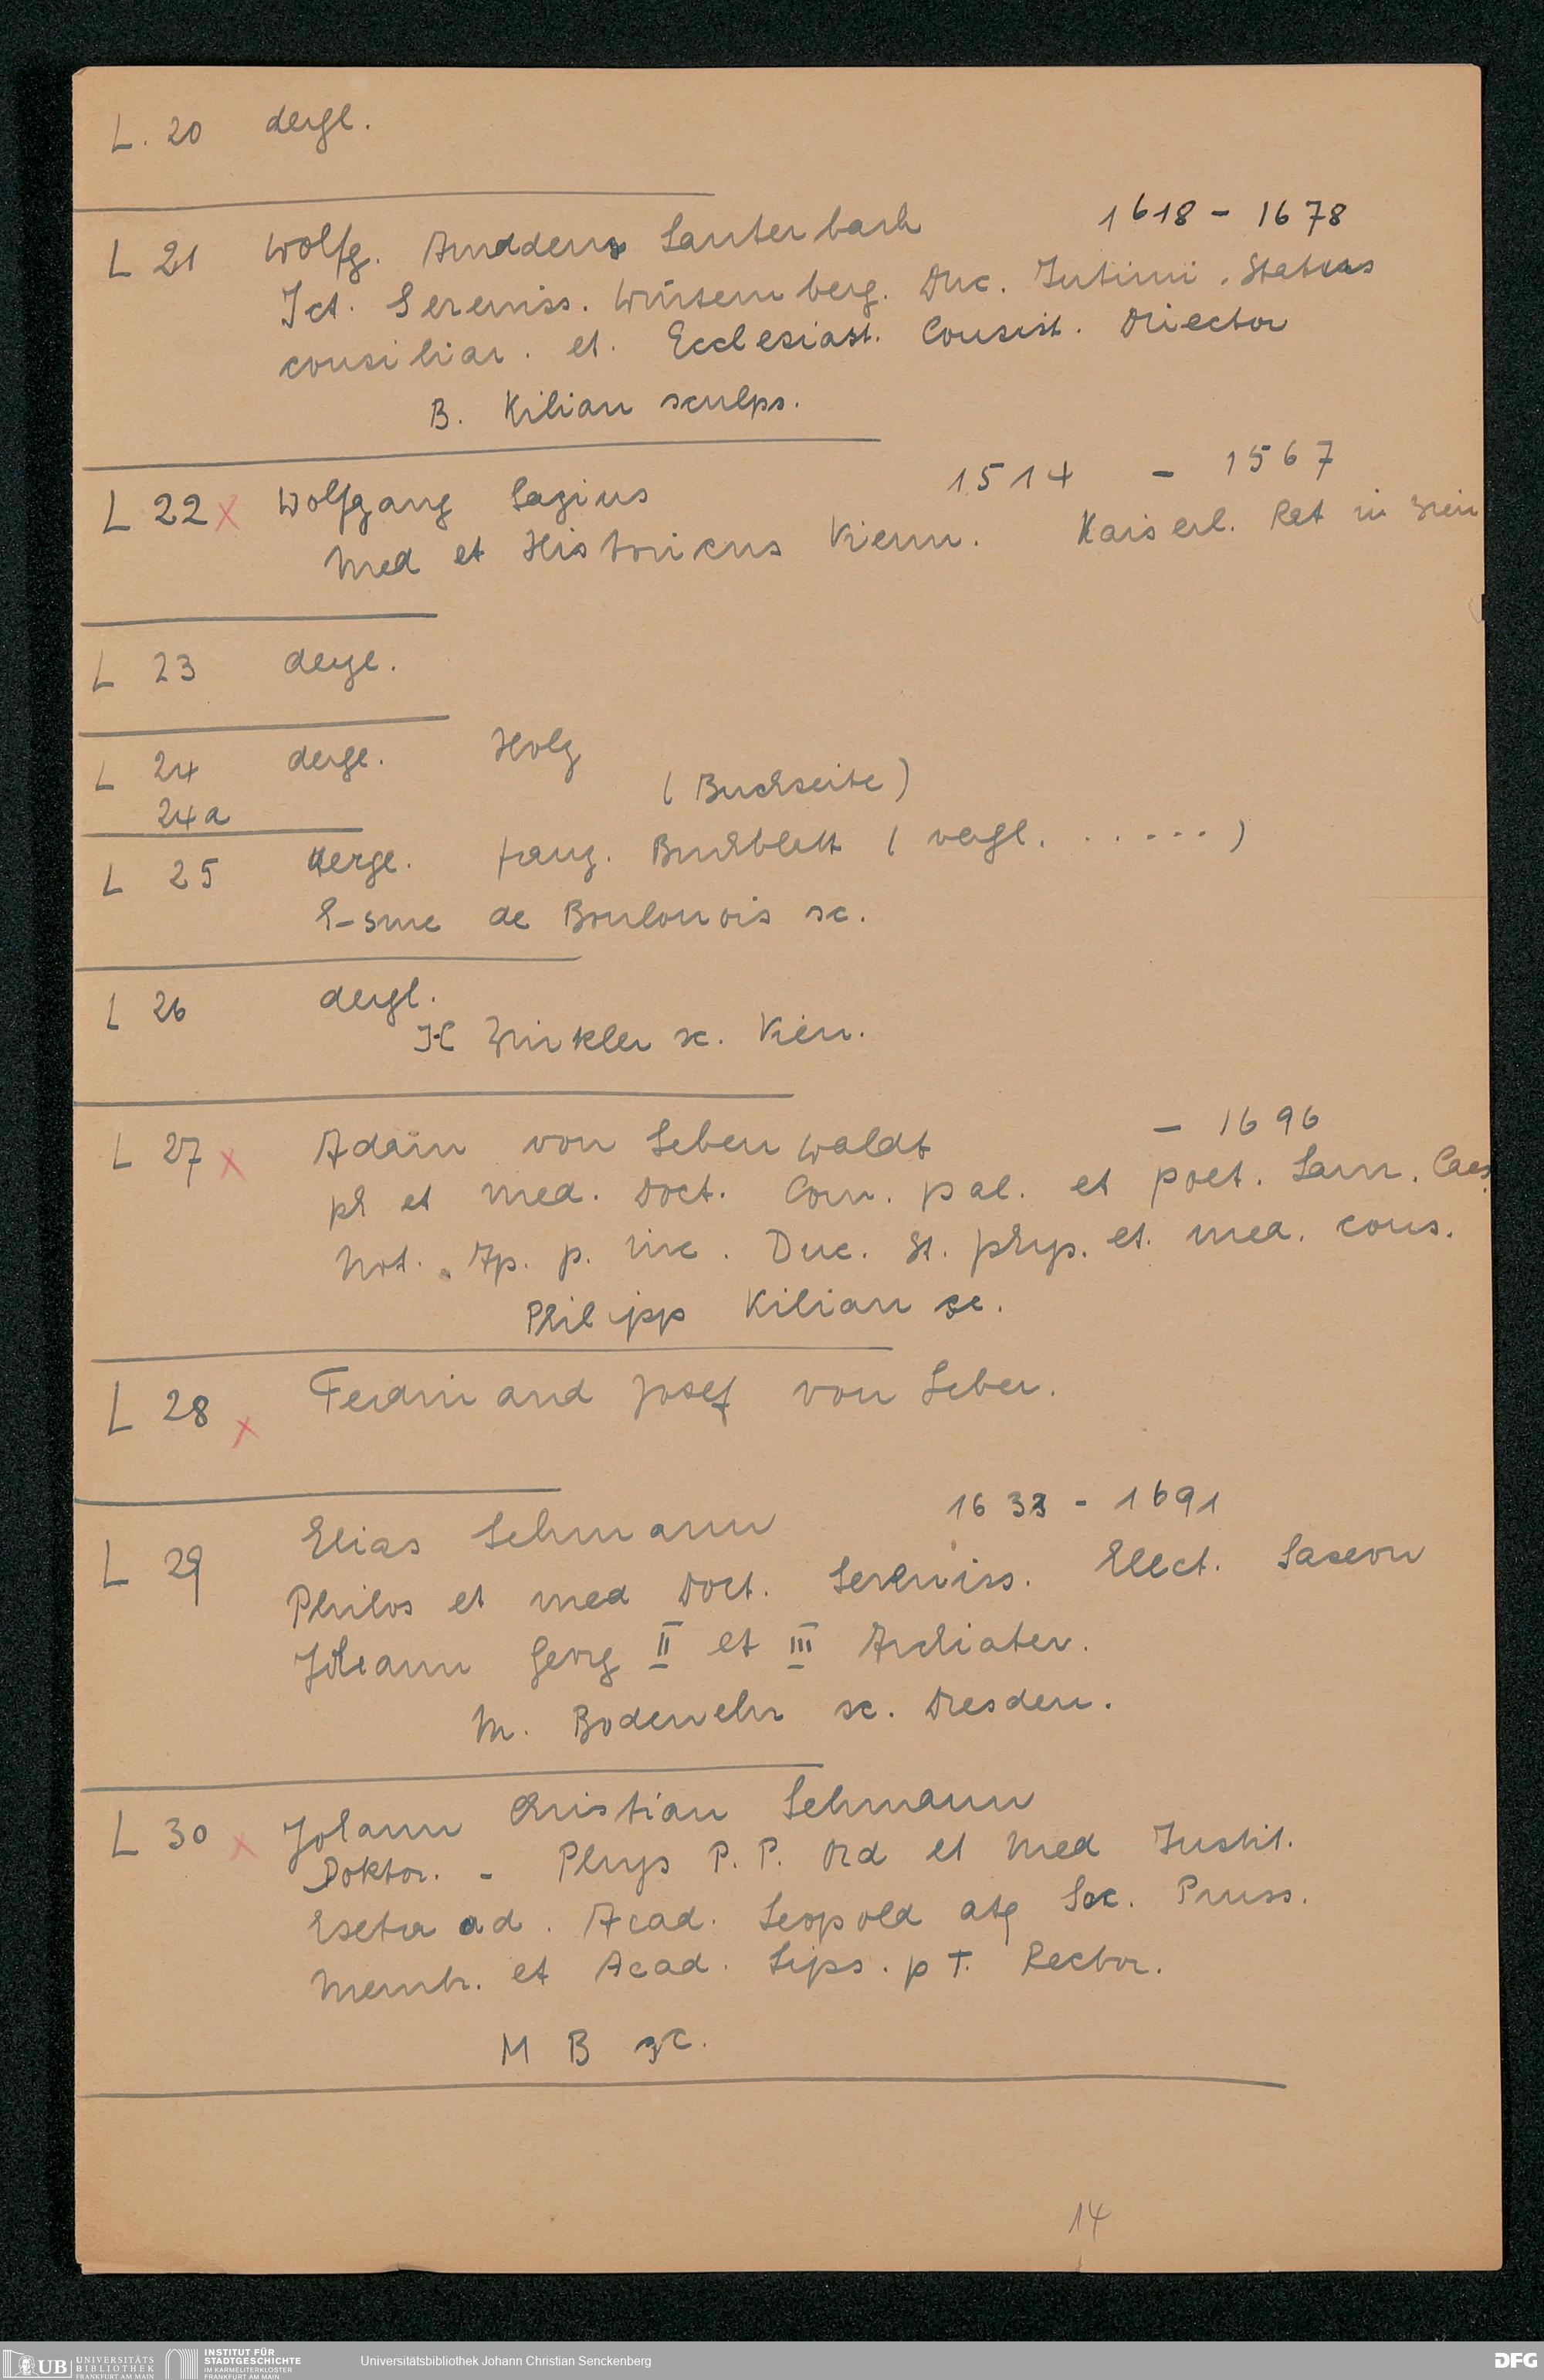 L. 20 dergl.
L 21 Wolfg. Lauterbach 1618 - 1678
Jct. Sereniss. Würtemberg. Duc. Intimi. Status
consiliar. et. Ecclesiast. Consist. Director
B. Kilian sculps.
L 22 x Wolfgang Lazius 1514 - 1567
Med et Historicus Vienn. Kaiserl. Rat in Wien
L 23 dergl.
L 24 dergl. Holz
24a (Buchseite)
L 25 dergl. franz. Buchblatt (vergl. . . . . . )
de Boulonois sc.
L 26 dergl.
Winkler sc. Vien.
L 27 x Adam von Lebenwaldt - 1696
ph et med. Doct. Com. pal. et poet. Laur. Caes.
Not. Ap. p. inc. Duc. St. phys. et. med. cons.
Philipp Kilian sc.
L 28 x Ferdinand Josef von Leber.
L 29 Elias Lehmann 1633 - 1691
Philos et med Doct. Sereniss. Elect. Saxon
Johann Georg II et III Archiater.
M. Bodenehr sc. Dresden.
L 30 x Johann Christian Lehmann
Doktor. - Phys P. P. Ord et Med Instit.
ad. Acad. Leopold atq Soc. Pruss.
Membr. et Acad. Lips. p T. Rector.
M B sc.
14
UB UNIVERSITÄTS
BIBLIOTHEK
FRANKFURT AM MAIN
INSTITUT FÜR
STADTGESCHICHTE
IM KARMELITERKLOSTER
FRANKFURT AM MAIN
Universitätsbibliothek Johann Christian Senckenberg
DFG